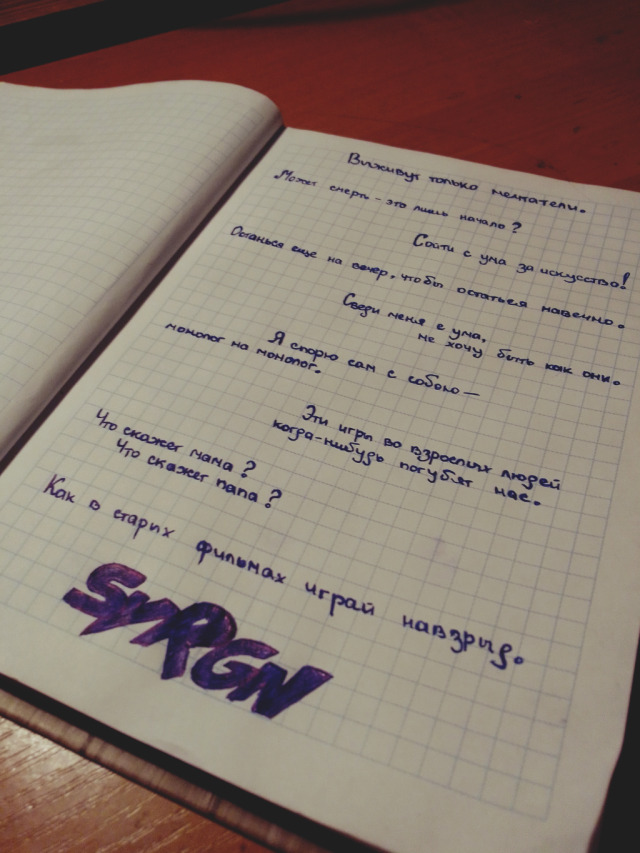 Выживут только мечтатели.
Может смерть - это лишь начало?
Сойти с ума за искусство!
Останься еще на вечер, чтобы остаться навечно.
Сведи меня с ума,
не хочу быть как они.
Я спорю сам с собою—
монолог на монолог.
Эти игры во взрослых людей
когда-нибудь погубят нас.
Что скажет мама?
Что скажет папа?
Как в старых фильмах играй навзрыд.
SMRGN